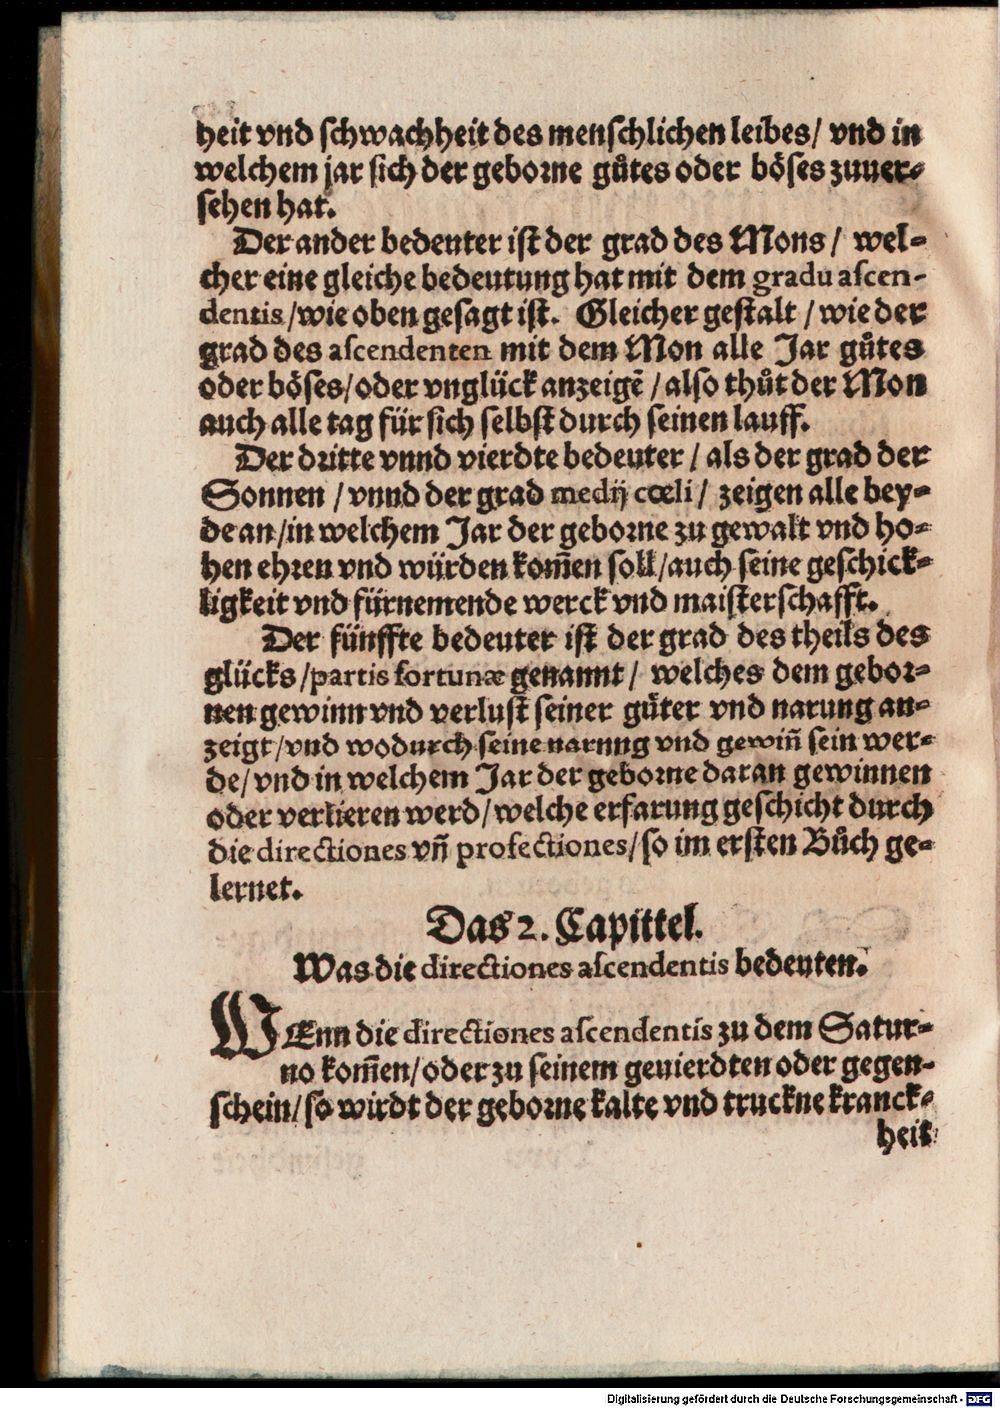 heit vnd schwachheit des menschlichen leibes/ vnd in
welchem jar sich der geborne gůtes oder böses zuuer-
sehen hat.
Der ander bedeuter ist der grad des Mons/ wel-
cher eine gleiche bedeutung hat mit dem gradu ascen-
dentis/wie oben gesagt ist. Gleicher gestalt/wie der
grad des ascendenten mit dem Mon alle Jar gůtes
oder böses/oder vnglück anzeigē/also thůt der Mon
auch alle tag für sich selbst durch seinen lauff.
Der dritte vnnd vierdte bedeuter/als der grad der
Sonnen/vnnd der grad medij cœli/ zeigen alle bey-
de an/in welchem Jar der geborne zu gewalt vnd ho-
hen ehren vnd würden kom̄en soll/auch seine geschick-
ligkeit vnd fürnemende werck vnd maisterschafft.
Der fünffte bedeuter ist der grad des theils des
glücks/partis fortunæ genannt/ welches dem gebor-
nen gewinn vnd verlust seiner gůter vnd narung an-
zeigt/vnd wodurch seine narung vnd gewin̄ sein wer-
de/vnd in welchem Jar der geborne daran gewinnen
oder verlieren werd/welche erfarung geschicht durch
die directiones vn̄ profectiones/so im ersten Bůch ge-
lernet.
Das 2. Capittel.
Was die directiones ascendentis bedeuten.
WEnn die directiones ascendentis zu dem Satur-
no kom̄en/oder zu seinem geuierdten oder gegen-
schein/so wirdt der geborne kalte vnd truckne kranck-
heit
Digitalisierung gefördert durch die Deutsche Forschungsgemeinschaft - DFG